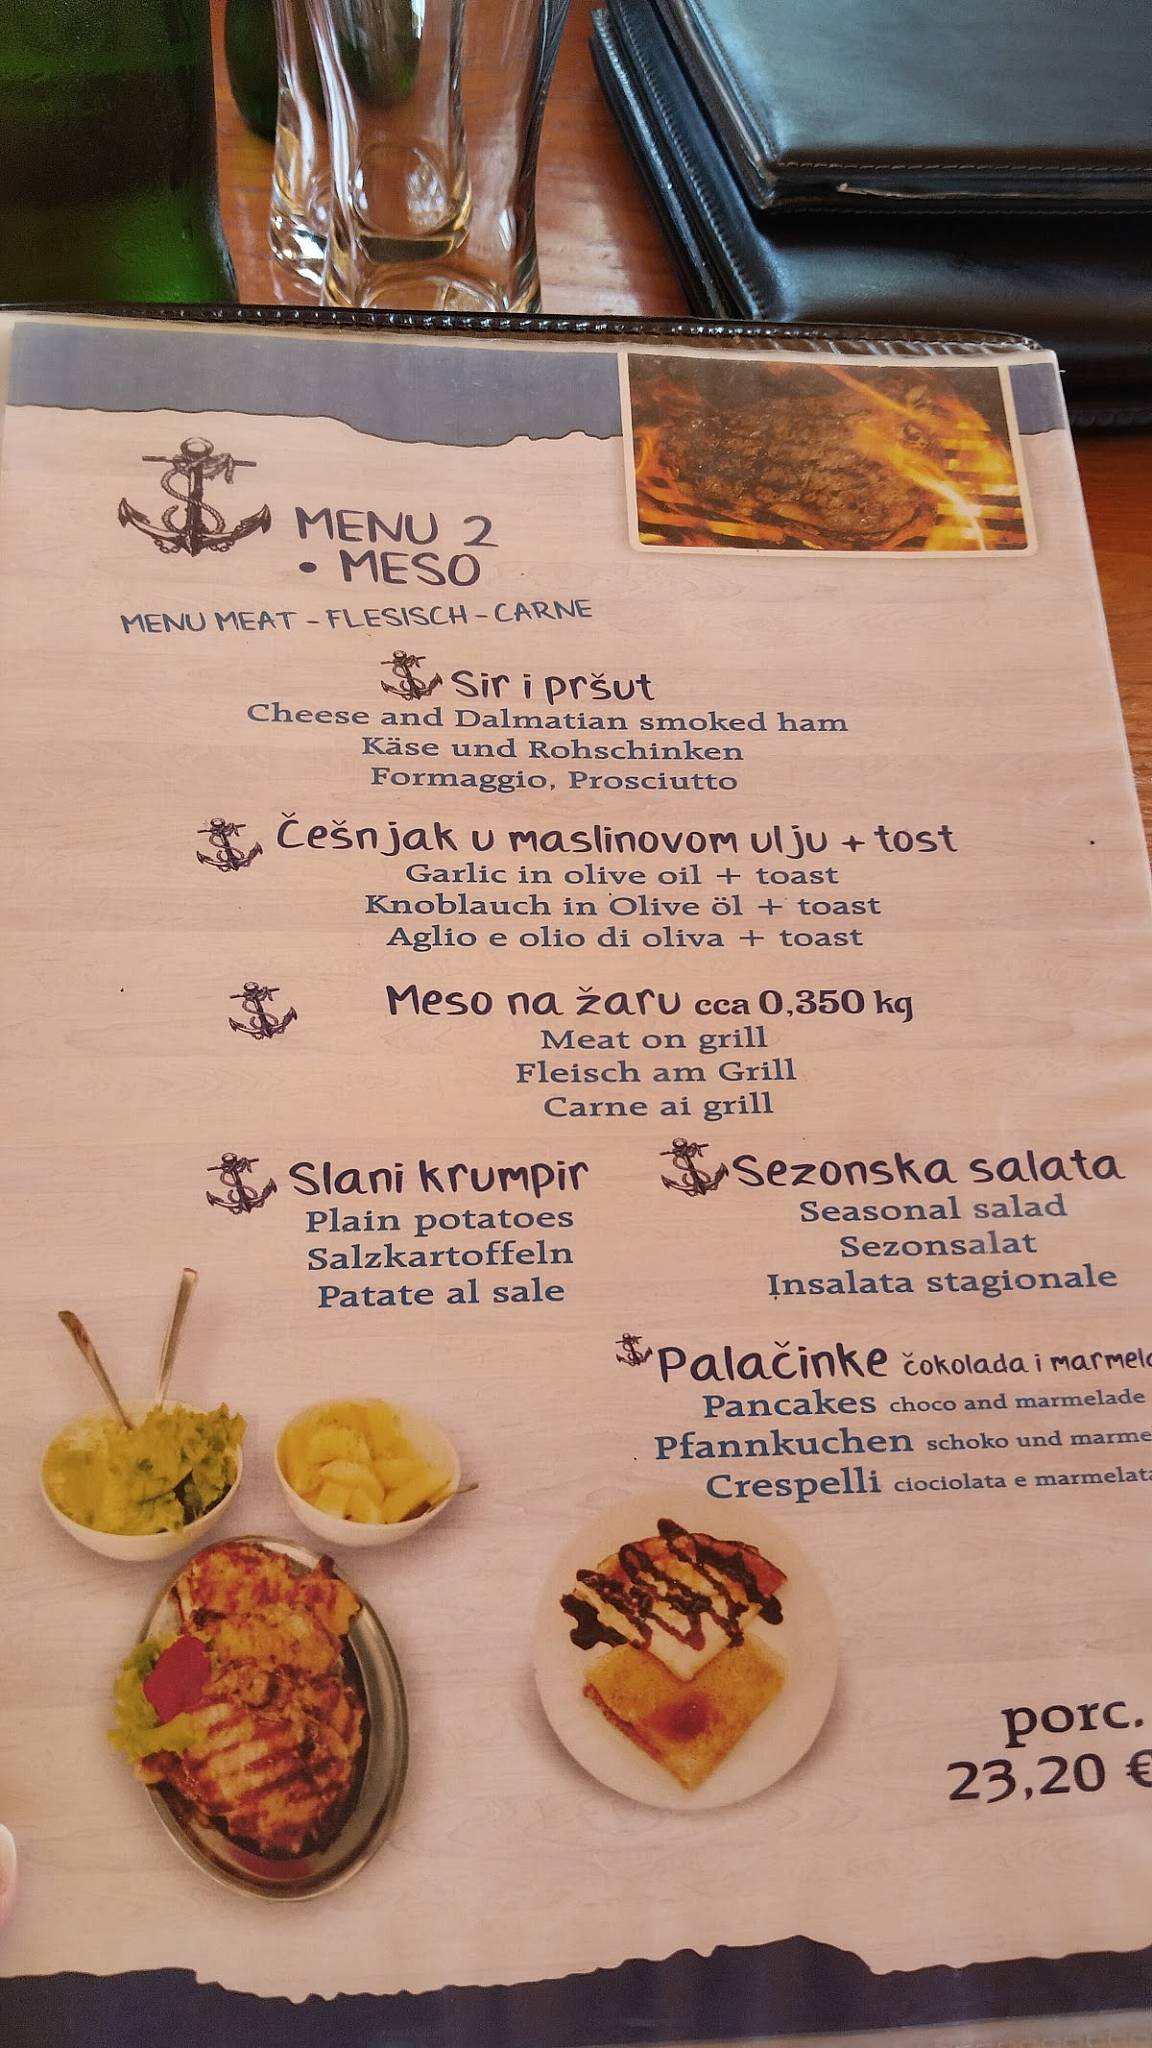 MENU 2
• MESO
MENU MEAT - FLESISCH - CARNE
Sir i pršut
Cheese and Dalmatian smoked ham
Käse und Rohschinken
Formaggio, Prosciutto
Češnjak u maslinovom ulju + tost
Garlic in olive oil + toast
Knoblauch in Olive öl + toast
Aglio e olio di oliva + toast
Meso na žaru cca 0,350 kg
Meat on grill
Fleisch am Grill
Carne ai grill
Slani krumpir
Plain potatoes
Salzkartoffeln
Patate al sale
Sezonska salata
Seasonal salad
Sezonsalat
Insalata stagionale
Palačinke čokolada i
Pancakes choco and marmelade
Pfannkuchen schoko und
Crespelli ciociolata e
porc.
23,20 €